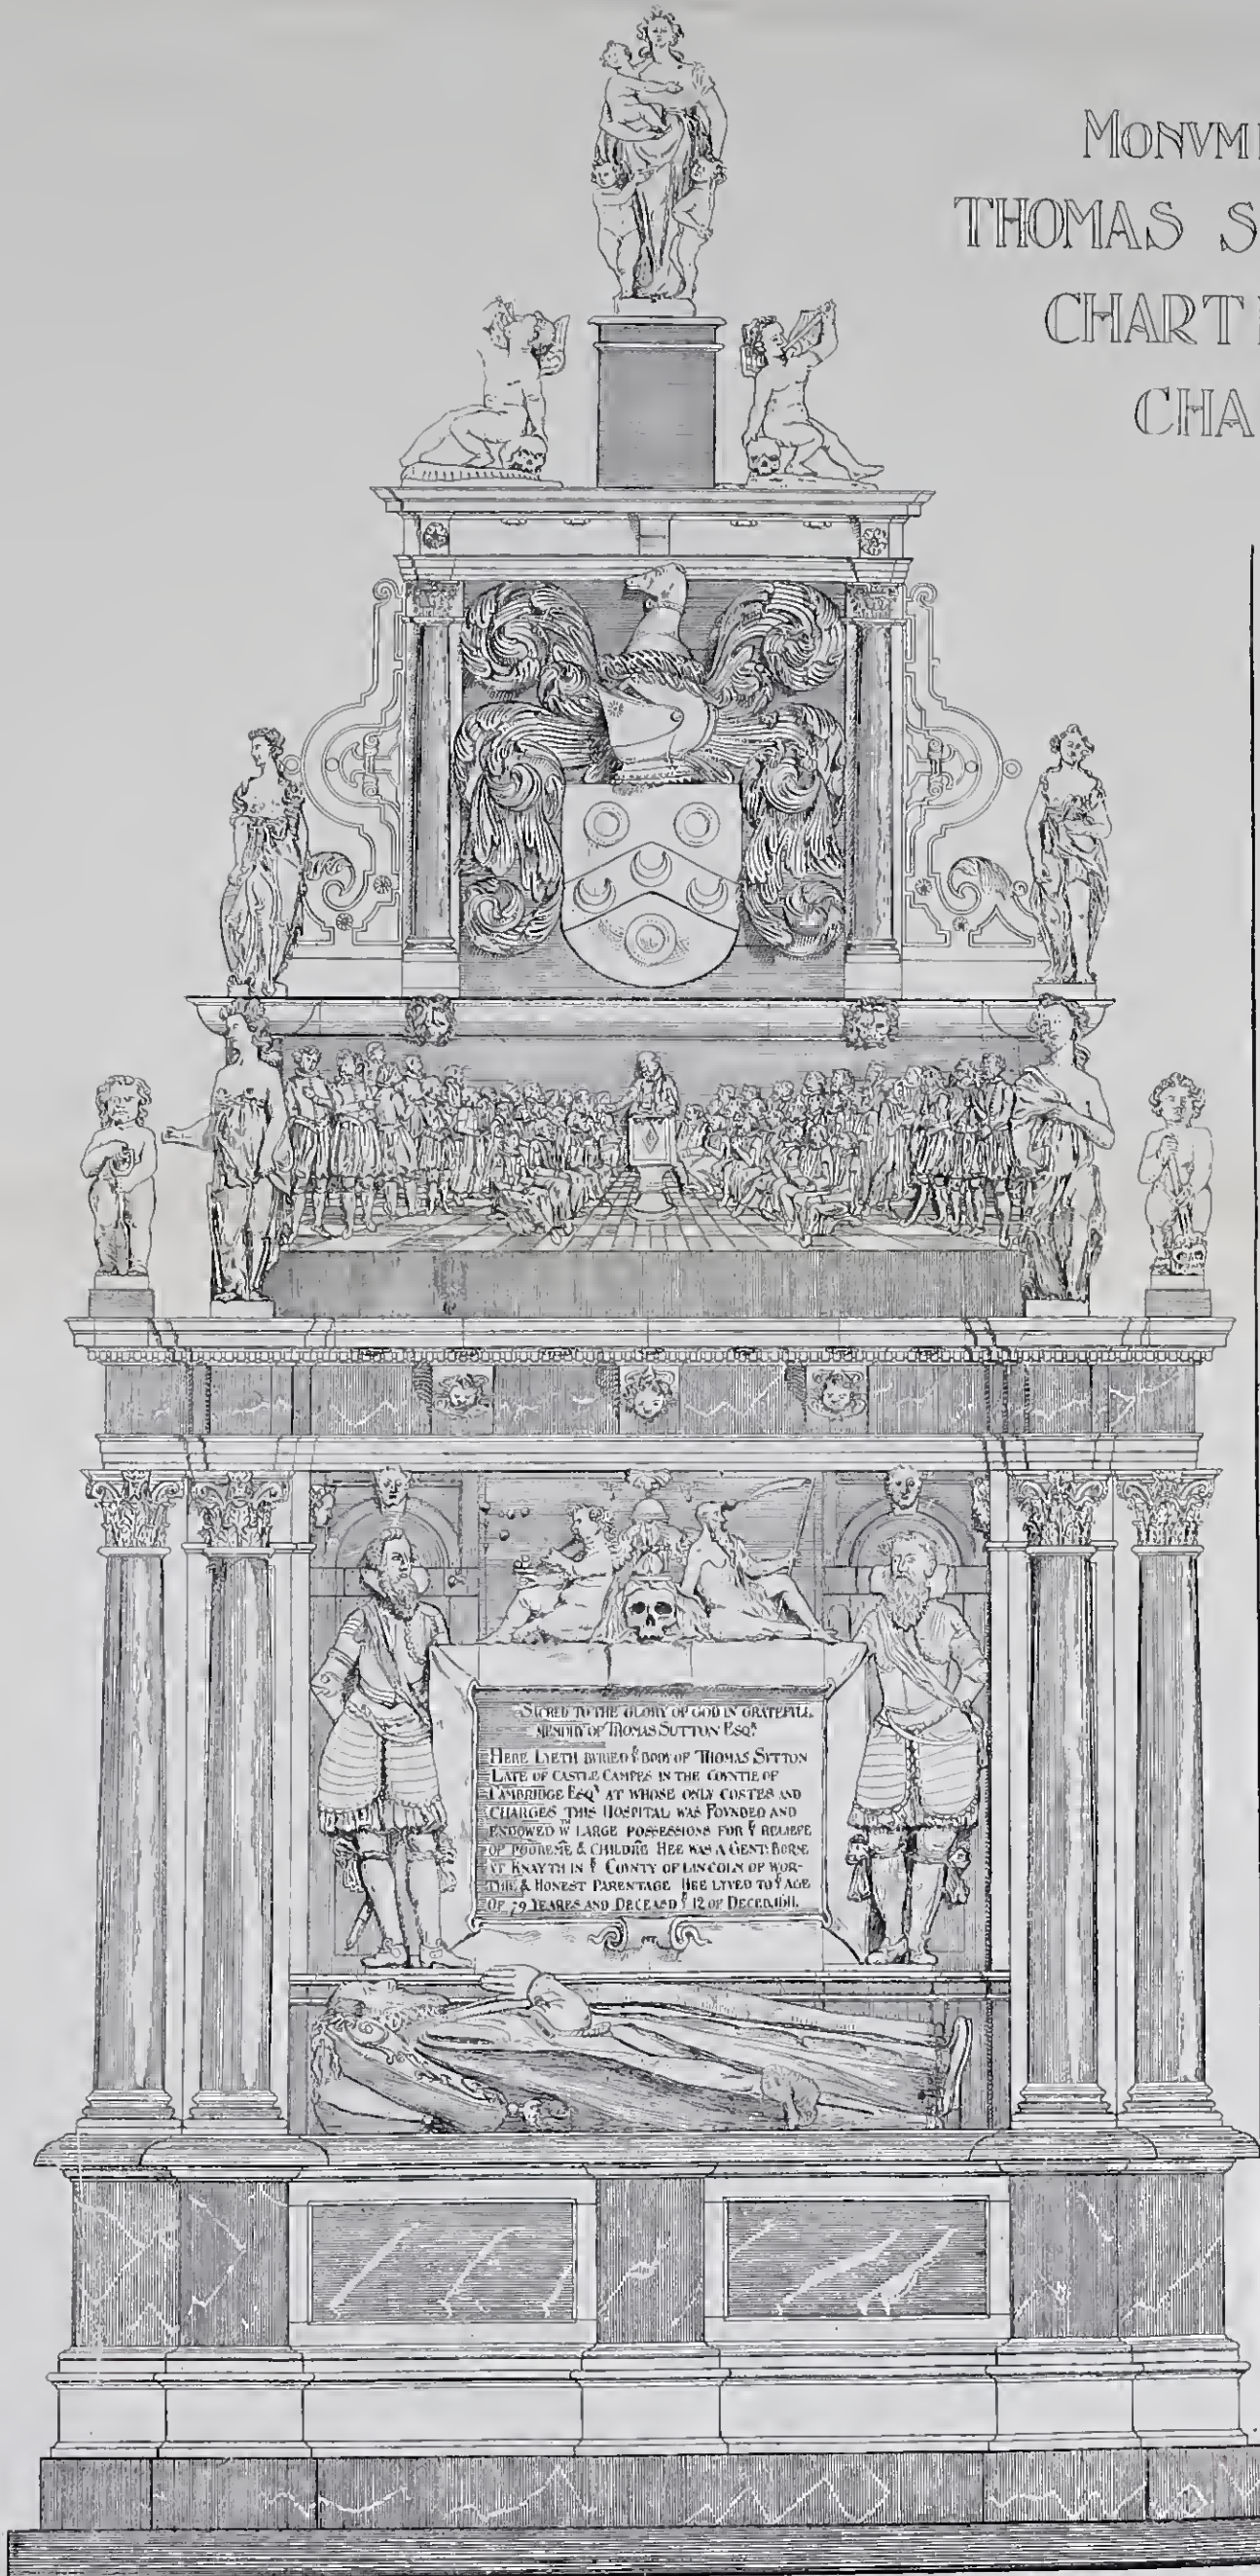 MONVM
THOMAS S
CHART
CHA
SACRED TO THE GLORY OF GOD IN GRATEFVLL
MEMORY OF THOMAS SUTTON ESQR
HERE LYETH BVRIED Ye BODY OF THOMAS SVTTON
LATE OF CASTLE CAMPES IN THE COVNTIE OF
CAMBRIDGE ESQR AT WHOSE ONLY COSTES AND
CHARGES THIS HOSPITAL WAS FOVNDED AND
ENDOWED WTH LARGE POSSESSIONS FOR Ye RELIEFE
OF POORE MĒ & CHILDRĒ HEE WAS A GENT: BORNE
AT KNAYTH IN Ye COVNTY OF LINCOLN OF WOR-
THIE & HONEST PARENTAGE HEE LIVED TO Ye AGE
OF 79 YEARES AND DECEASD Ye 12 OF DECEB.